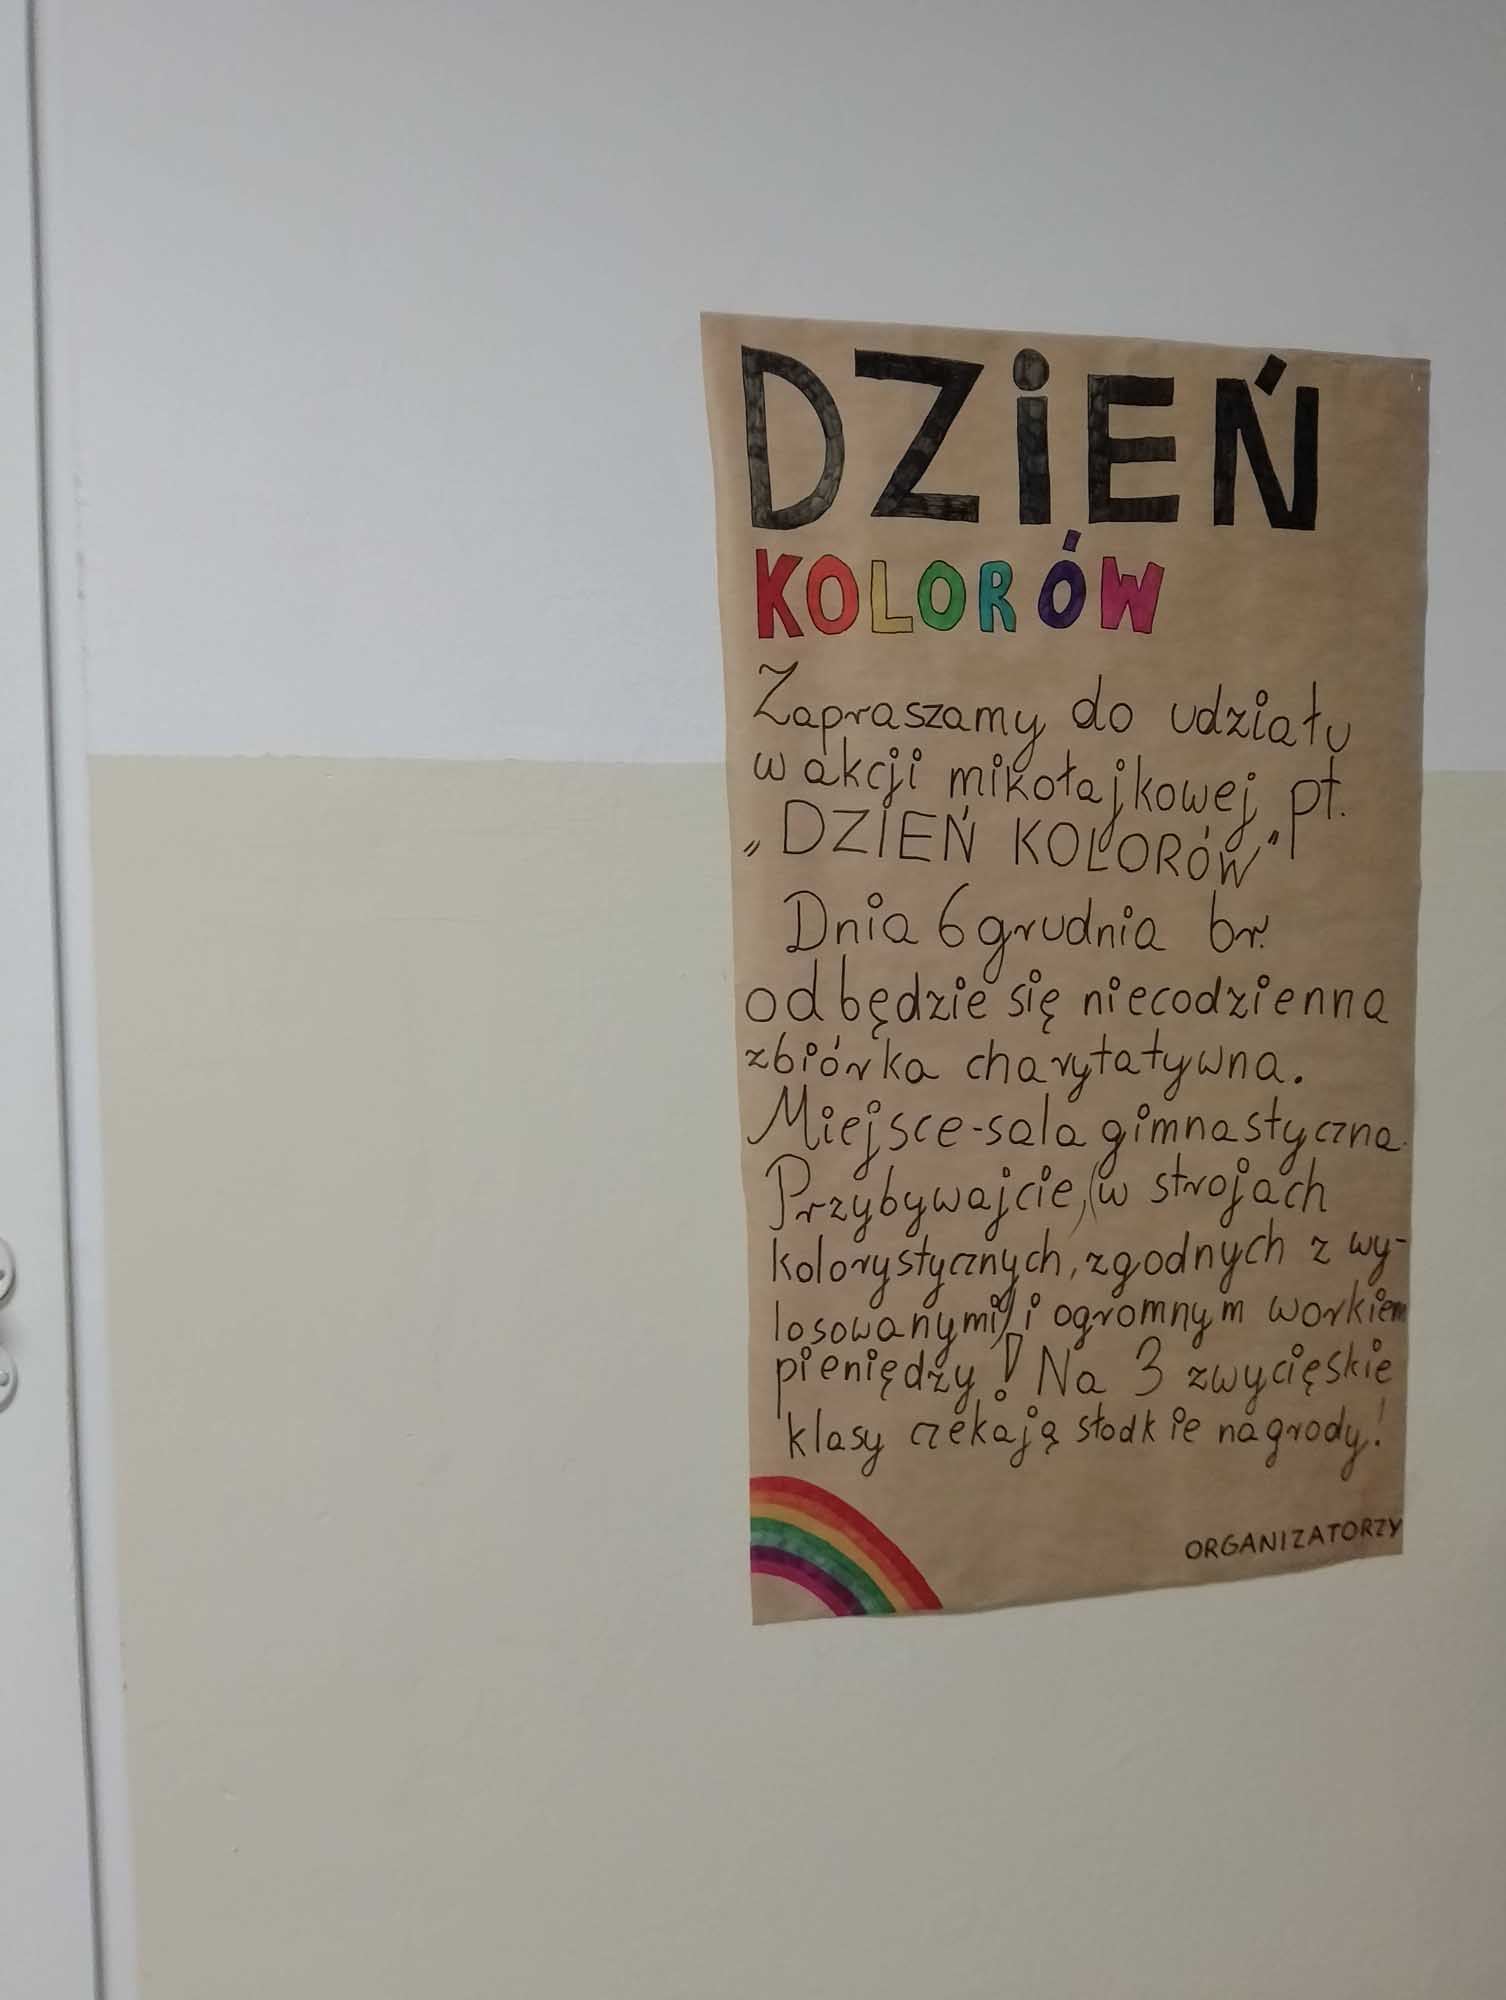 DZiEŃ
KOLORÓW
Zapraszamy do udziału
w akcji mikołajkowej pt.
„DZIEŃ KOLORÓW"
Dnia 6 grudnia br.
odbędzie się niecodzienna
zbiórka charytatywna.
Miejsce-sala gimnastyczna.
Przybywajcie, (w strojach
kolorystycznych, zgodnych z wy-
losowanymi) i ogromnym workiem
pieniędzy! Na 3 zwycięskie
klasy czekają słodkie nagrody!
ORGANIZATORZY